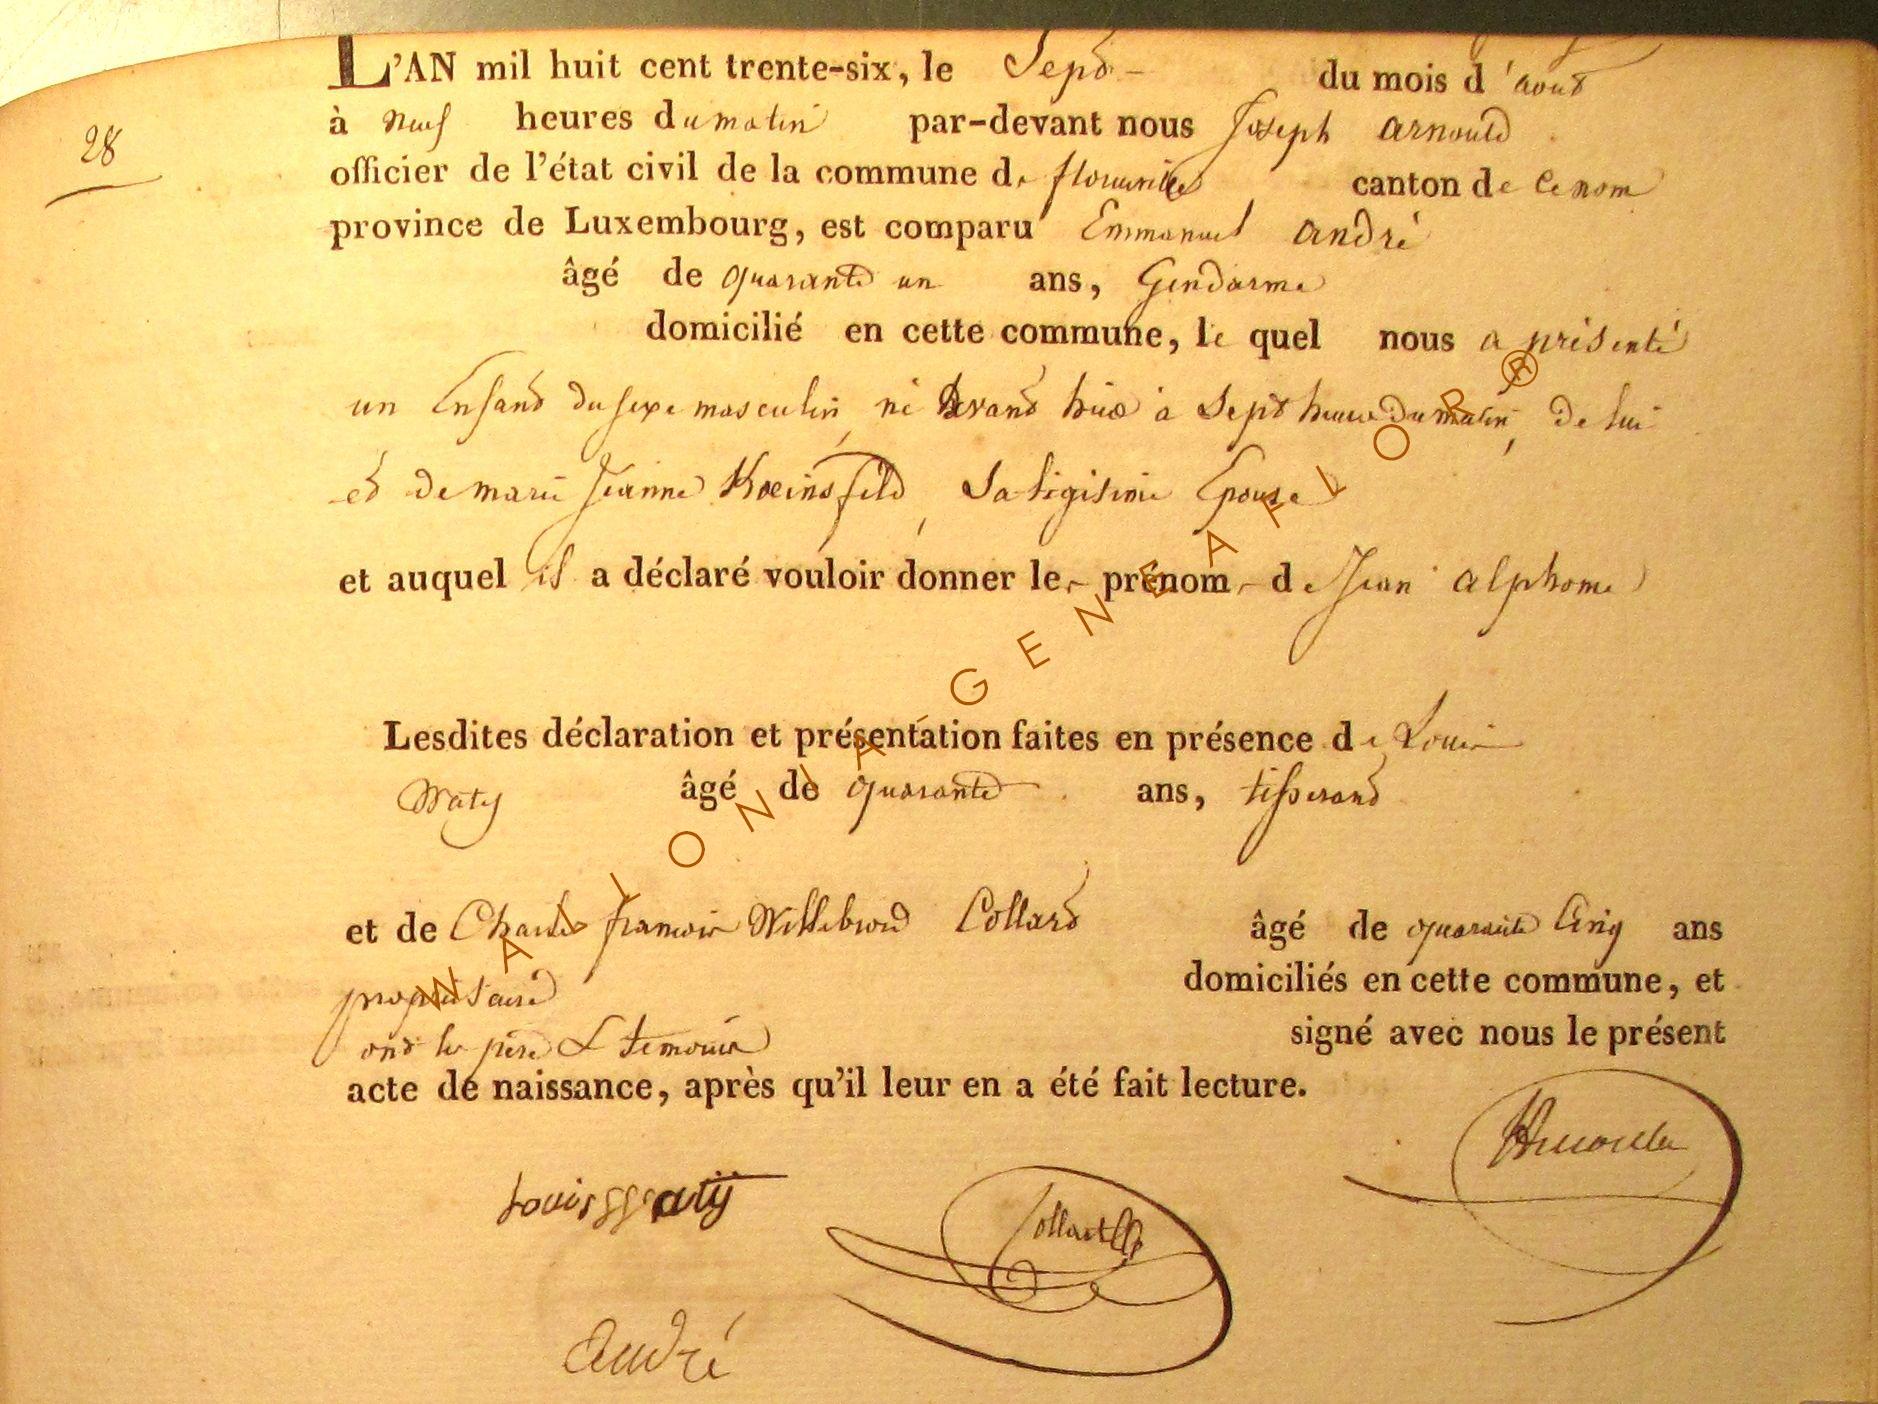 L'AN mil huit cent trente-six, le Sept du mois d'aout
28
à neuf heures du matin par-devant nous Joseph arnould
officier de l'état civil de la commune de florenville canton de ce nom
province de Luxembourg, est comparu Emmanuel andré
âgé de quarante un ans, Gendarme
domicilié en cette commune, le quel nous a présenté
un Enfant du sexe masculin né avant hier à Sept heures du matin, de lui
et de marie Jeanne Sa légitime Epouse
et auquel il a déclaré vouloir donner les prénoms de Jean alphonse
Lesdites déclaration et présentation faites en présence de Louis
Waty âgé de quarante ans, tisserand
et de Charles françois Willebrord Collard âgé de quarante Cinq ans
propriétaire domiciliés en cette commune, et
ont les père & temoins signé avec nous le présent
acte de naissance, après qu'il leur en a été fait lecture.
Louis Watÿ
André
WALLONIA-GENEAFLOR®